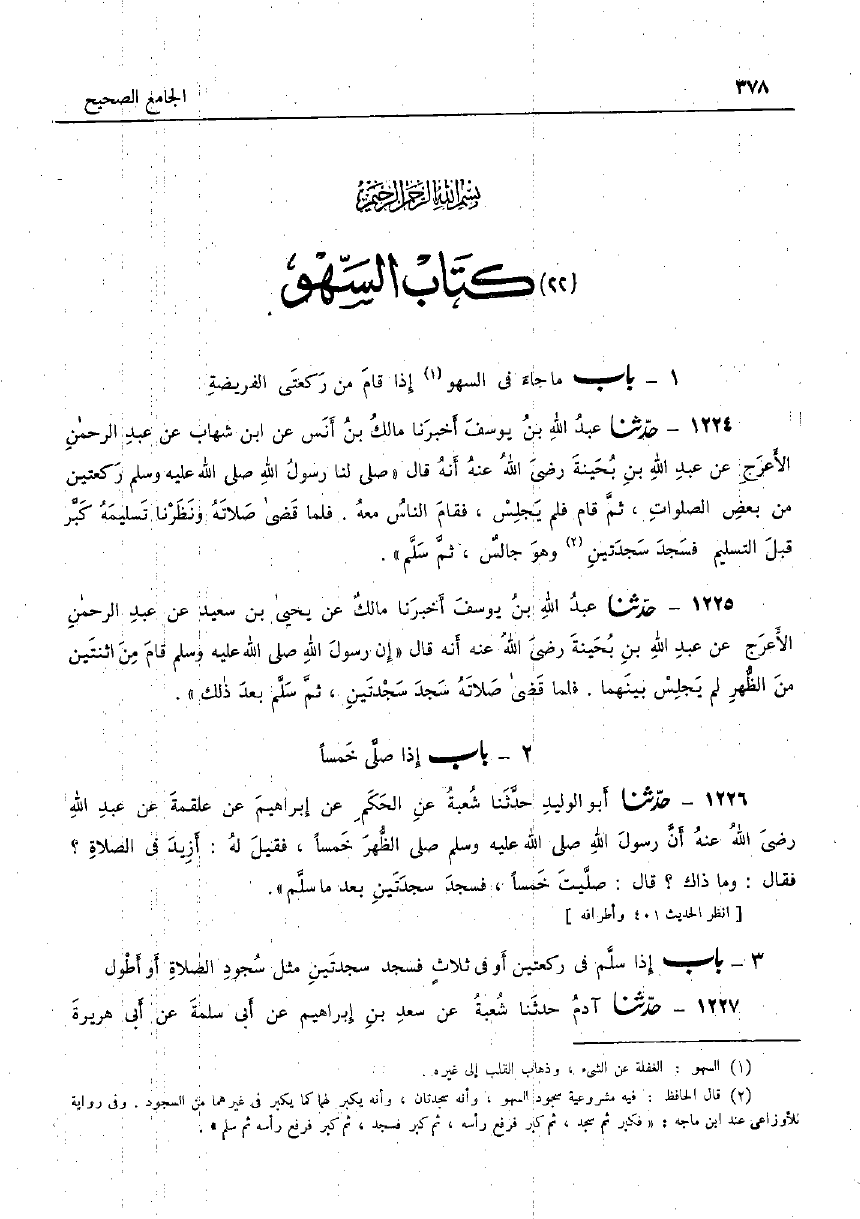 ٣٧٨
الجامع الصحيح
بسم الله الرحمن الرحيم
(٢٢) كتَابُ السَّهْو
١ – باب ماجاءَ فى السهو (١) إذا قامَ من رَكعتَى الفريضةِ
١٢٢٤ – حدّثنا عبدُ اللهِ بنُ يوسفَ أخبرَنا مالكُ بنُ أنَس عن ابن شهاب عن عبدِ الرحمٰنِ
الأَعرَجِ عن عبدِ اللهِ بنِ بُحَينةَ رضىَ اللهُ عنهُ أنهُ قال « صلى لنا رسولُ اللهِ صلى الله عليه وسلم رَكعتين
من بعضِ الصلواتِ ، ثمَّ قام فلم يَجلِسْ ، فقامَ الناسُ معهُ . فلما قَضىٰ صَلاتَهُ ونَظَرْنا تَسليمَهُ كبَّر
قبلَ التسليم فسَجدَ سَجدَتينِ (٢) وهوَ جالسٌ ، ثمَّ سَلَّم » .
١٢٢٥ – حدّثنا عبدُ اللهِ بنُ يوسفَ أخبرَنا مالكٌ عن يحيىٰ بن سعيد عن عبدِ الرحمٰنِ
الأعرَج عن عبدِ اللهِ بنِ بُحَينةَ رضىَ اللهُ عنه أنه قال « إن رسولَ اللهِ صلى الله عليه وسلم قامَ مِنَ اثنتَين
منَ الظُّهرِ لم يَجلِسْ بينَهما . فلما قَضىٰ صَلاتَهُ سَجدَ سَجْدتَينِ ، ثمَّ سَلَّم بعدَ ذٰلك » .
٢ – باب إذا صلَّى خَمساً
١٢٢٦ – حدّثنا أبو الوليدِ حدَّثَنا شُعبةُ عنِ الحَكَمِ عن إبراهيمَ عن علقمةَ عن عبدِ اللهِ
رضىَ اللهُ عنهُ أنَّ رسولَ اللهِ صلى الله عليه وسلم صلى الظُّهرَ خَمساً ، فقيلَ لهُ : أَزِيدَ فى الصلاةِ ؟
فقال : وما ذاك ؟ قال : صلَّيتَ خَمساً ، فسجدَ سجدَتَينِ بعد ما سلَّم » .
[ انظر الحديث ٤٠١ وأطرافه ]
٣ – باب إذا سلَّم فى ركعتين أو فى ثلاثٍ فسجد سجدتَينِ مثل سُجودِ الصلاةِ أو أطول
١٢٢٧ – حدّثنا آدمُ حدثَنا شُعبةُ عن سعدِ بنِ إبراهيم عن أبى سلمةَ عن أبى هريرةَ
(١) السهو : الغفلة عن الشىء ، وذهاب القلب إلى غيره .
(٢) قال الحافظ : فيه مشروعية سجود السهو ، وأنه سجدتان ، وأنه يكبر لهما كما يكبر فى غيرهما من السجود . وفى رواية
للأوزاعى عند ابن ماجه : « فكبر ثم سجد ، ثم كبر فرفع رأسه ، ثم كبر فسجد ، ثم كبر فرفع رأسه ثم سلم » .